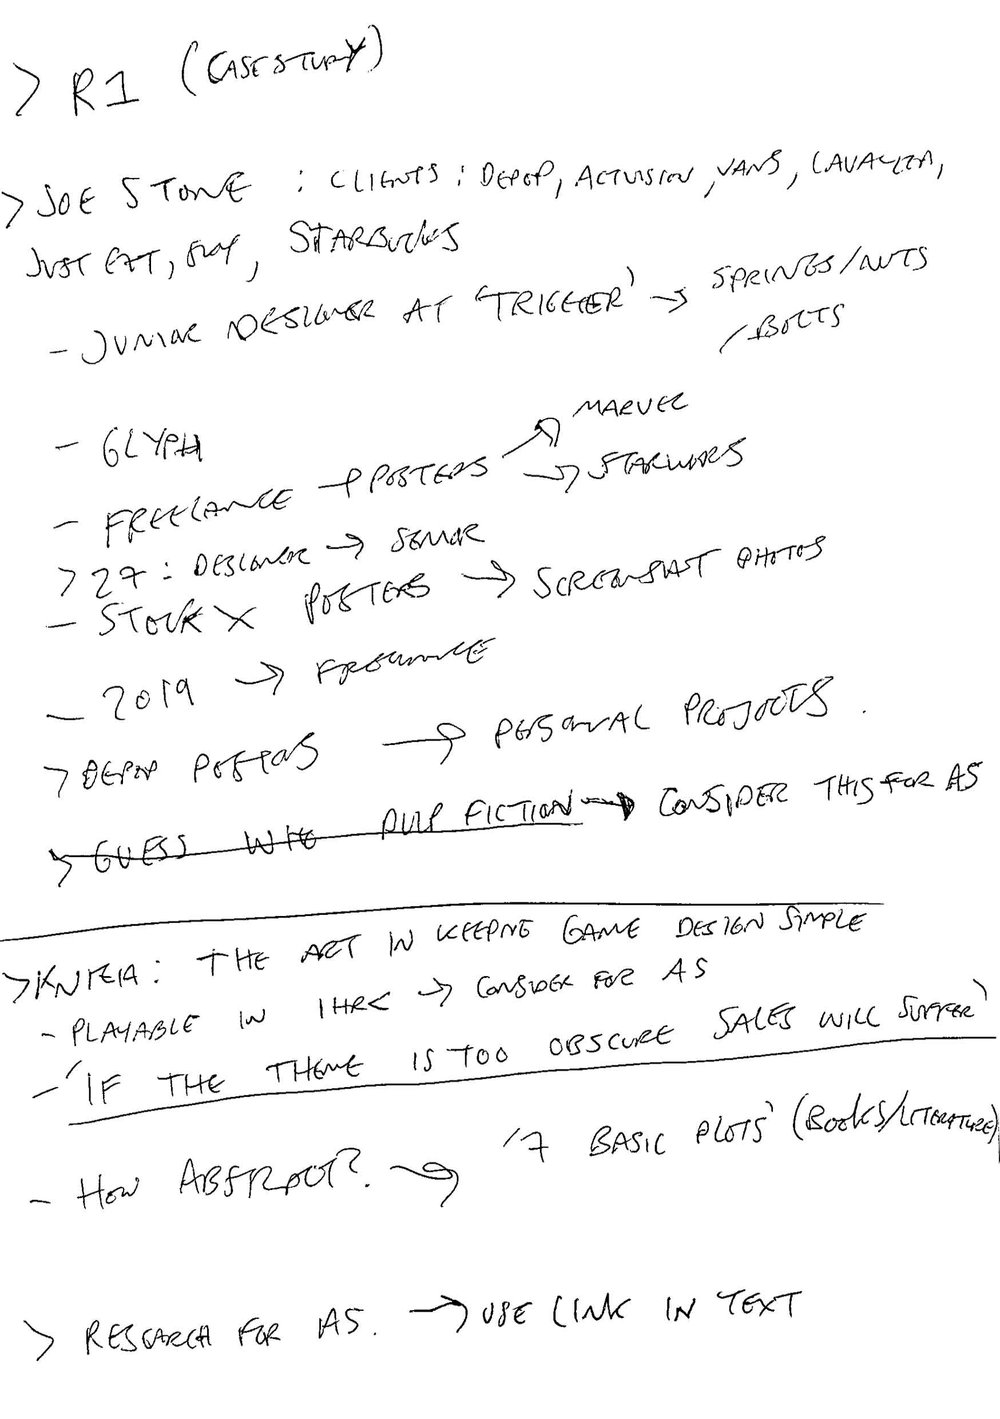 > R1 (CASE STUDY)
> JOE STONE : CLIENTS : DEPOP, ACTIVISION, VANS, LAVAZZA,
JUST EAT, , STARBUCKS
- JUNIOR DESIGNER AT 'TRIGGER' → SPRINGS/NUTS
/BOLTS
- GLYPH
- FREELANCE → POSTERS → MARVEL
→ STARWARS
> 27 : DESIGNER → SENIOR
- STOCKX POSTERS → SCREENSHOT PHOTOS
- 2019 → FREELANCE
> DEPOP POSTERS → PERSONAL PROJECTS.
> GUESS WHO PULP FICTION → CONSIDER THIS FOR AS
> KNIZIA: THE ART IN KEEPING GAME DESIGN SIMPLE
- PLAYABLE IN 1HR< → CONSIDER FOR AS
- 'IF THE THEME IS TOO OBSCURE SALES WILL SUFFER'
- HOW ABSTRACT? → '7 BASIC PLOTS' (BOOKS/LITERATURE)
> RESEARCH FOR AS. → USE LINK IN TEXT